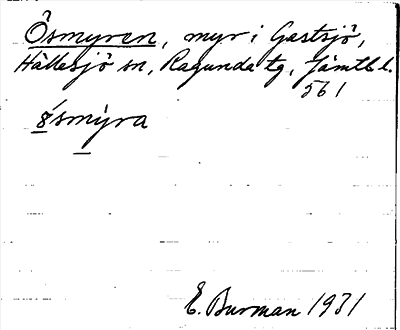 Ösmyren, myr i Gastsjö,
Hällesjö sn, Ragunda tg, Jämtl. l.
561
ǿsmy̆ra
E. Burman 1931